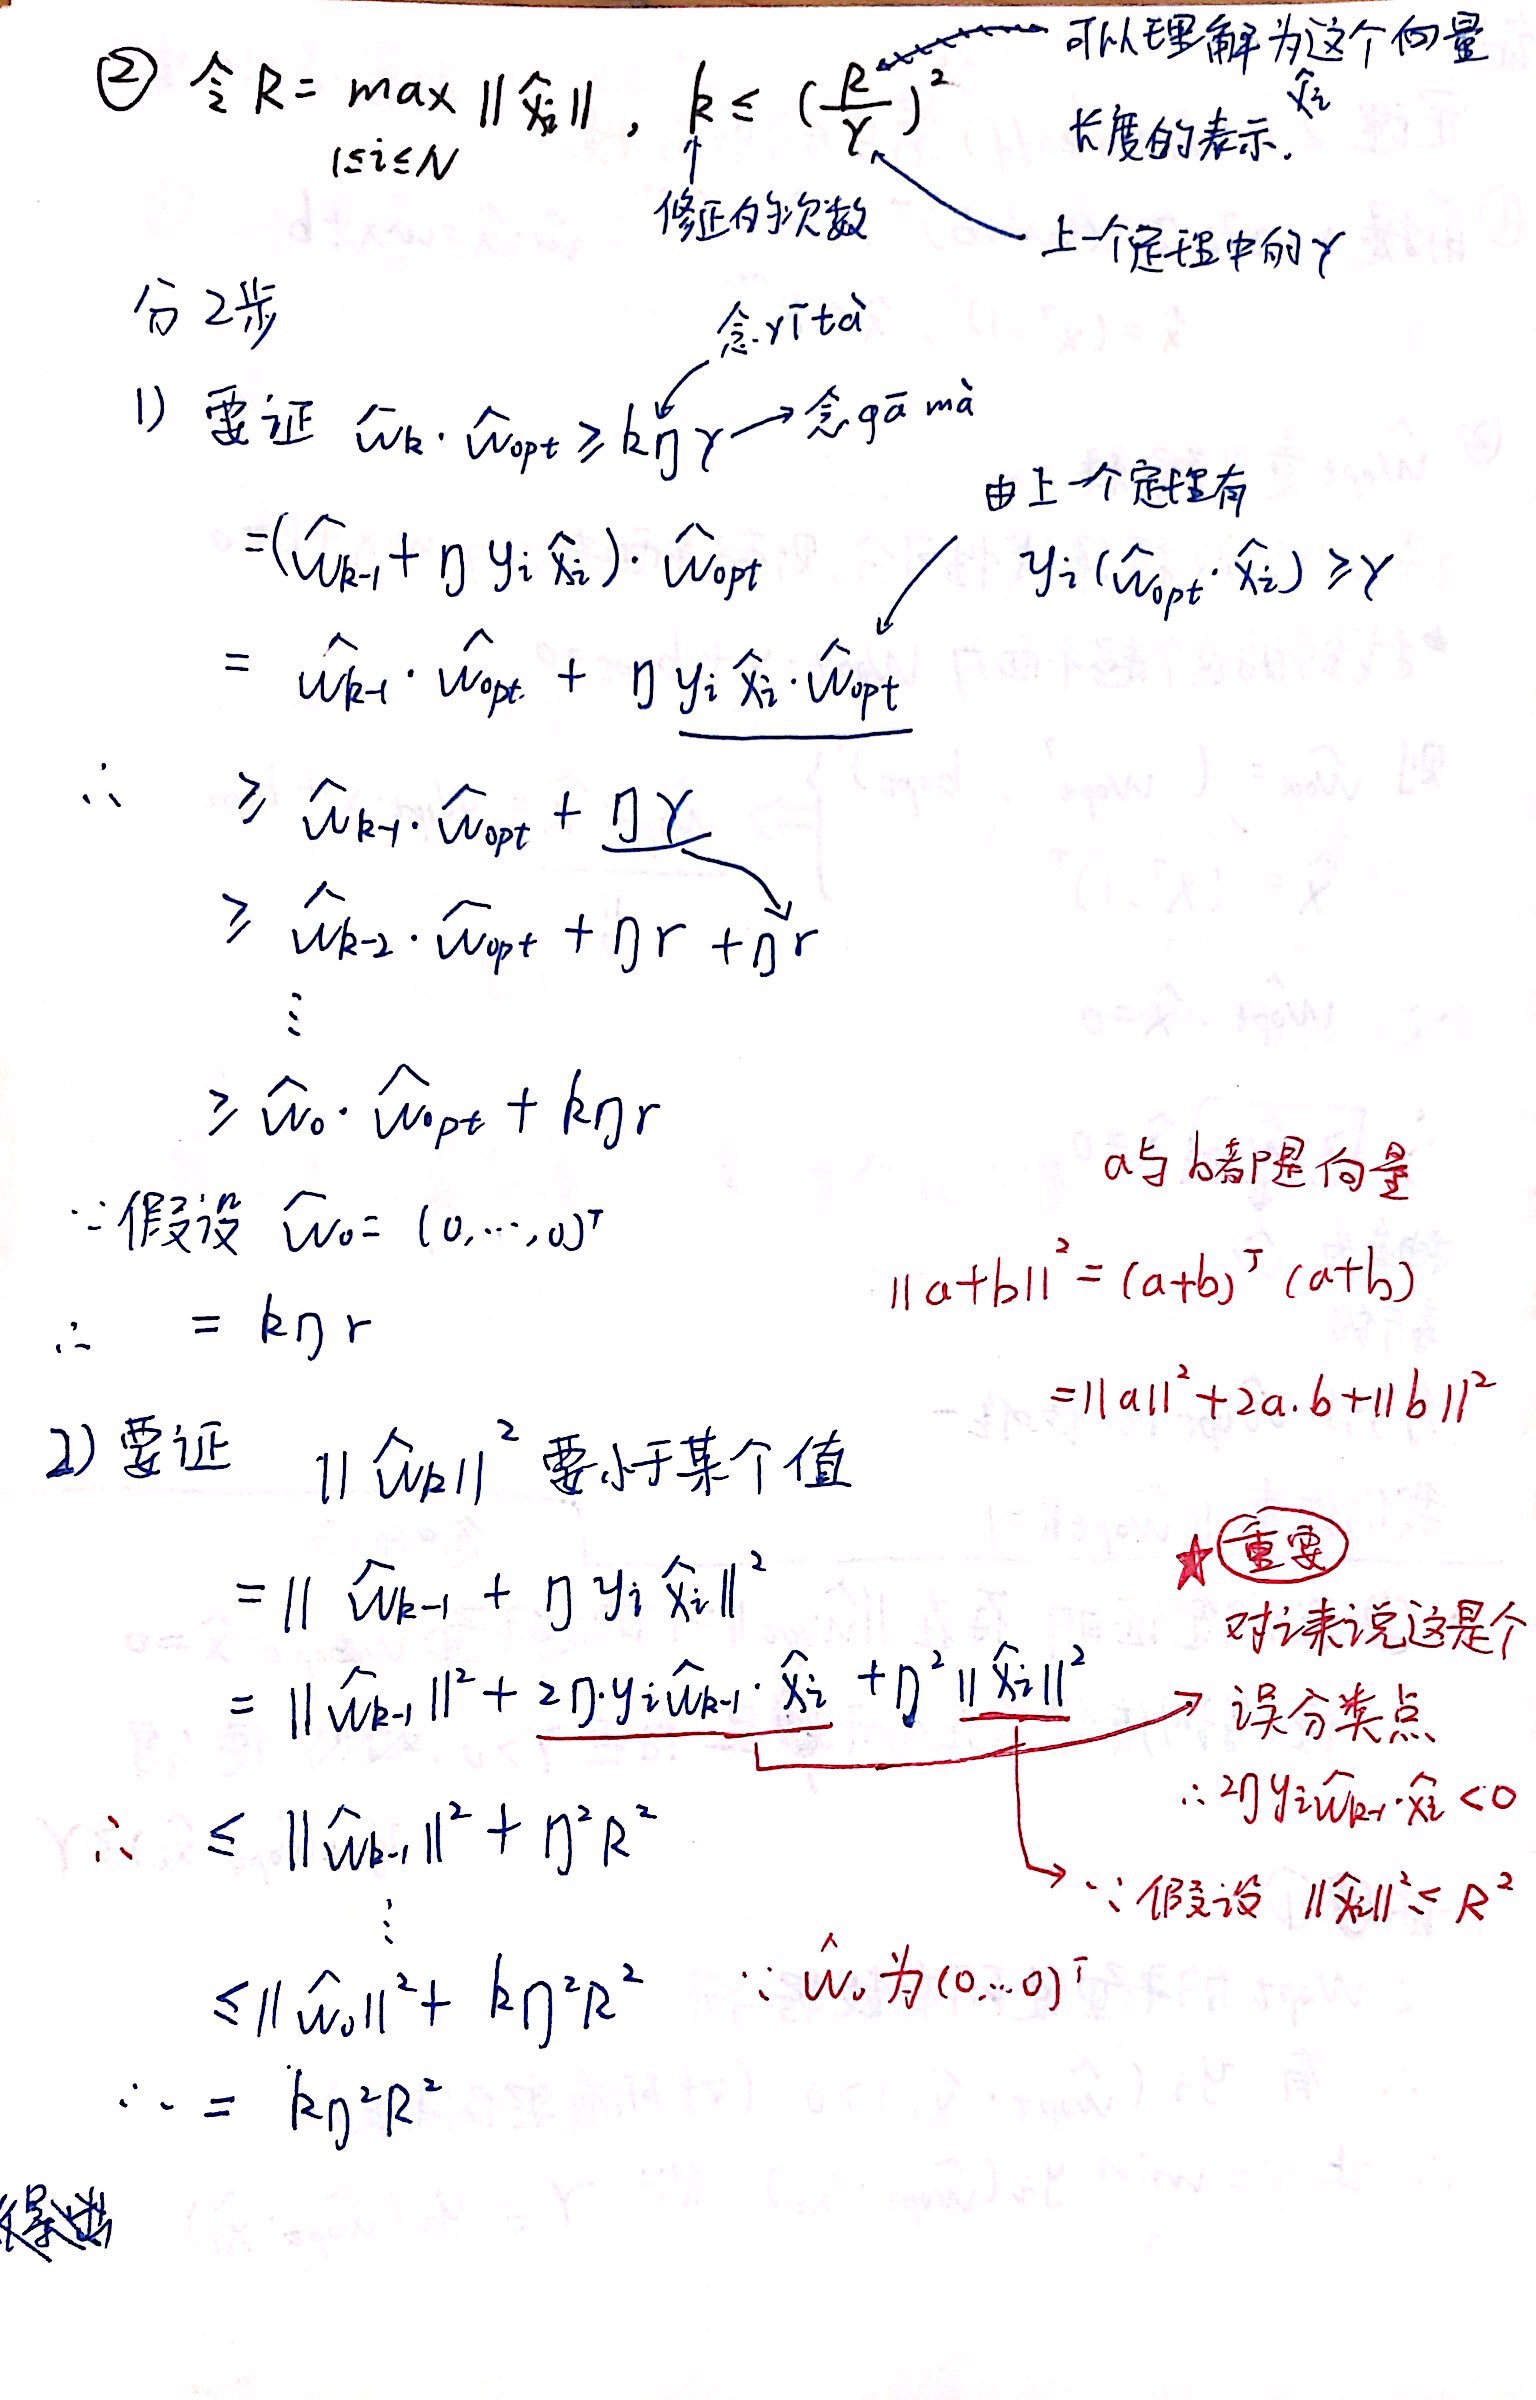 ② 令 R = max ‖x̂i‖ , k ≤ (R/γ)²
1≤i≤N
可以理解为这个向量 x̂i
长度的表示.
修正的次数
上一个定理中的γ
分2步
念yī tà
1) 要证 ŵk · ŵopt ≥ kηγ → 念gā mà
由上一个定理有
yi(ŵopt · x̂i) ≥ γ
=(ŵk-1 + η yi x̂i) · ŵopt
= ŵk-1 · ŵopt + η yi x̂i · ŵopt
∴ ≥ ŵk-1 · ŵopt + ηγ
≥ ŵk-2 · ŵopt + ηr + ηr
⋮
≥ ŵ0 · ŵopt + kηr
∵ 假设 ŵ0 = (0,…,0)ᵀ
∴ = kηr
a与b都是向量
‖a+b‖² = (a+b)ᵀ (a+b)
=‖a‖² + 2a.b + ‖b‖²
2) 要证 ‖ŵk‖² 要小于某个值
= ‖ŵk-1 + η yi x̂i‖²
= ‖ŵk-1‖² + 2η·yi ŵk-1 · x̂i + η² ‖x̂i‖²
★ 重要
对i来说这是个
误分类点
∴ 2η yi ŵk-1 · x̂i < 0
∴ ≤ ‖ŵk-1‖² + η²R²
∵ 假设 ‖x̂i‖² ≤ R²
⋮
≤ ‖ŵ0‖² + kη²R² ∵ ŵ0 为 (0…0)ᵀ
∴ = kη²R²